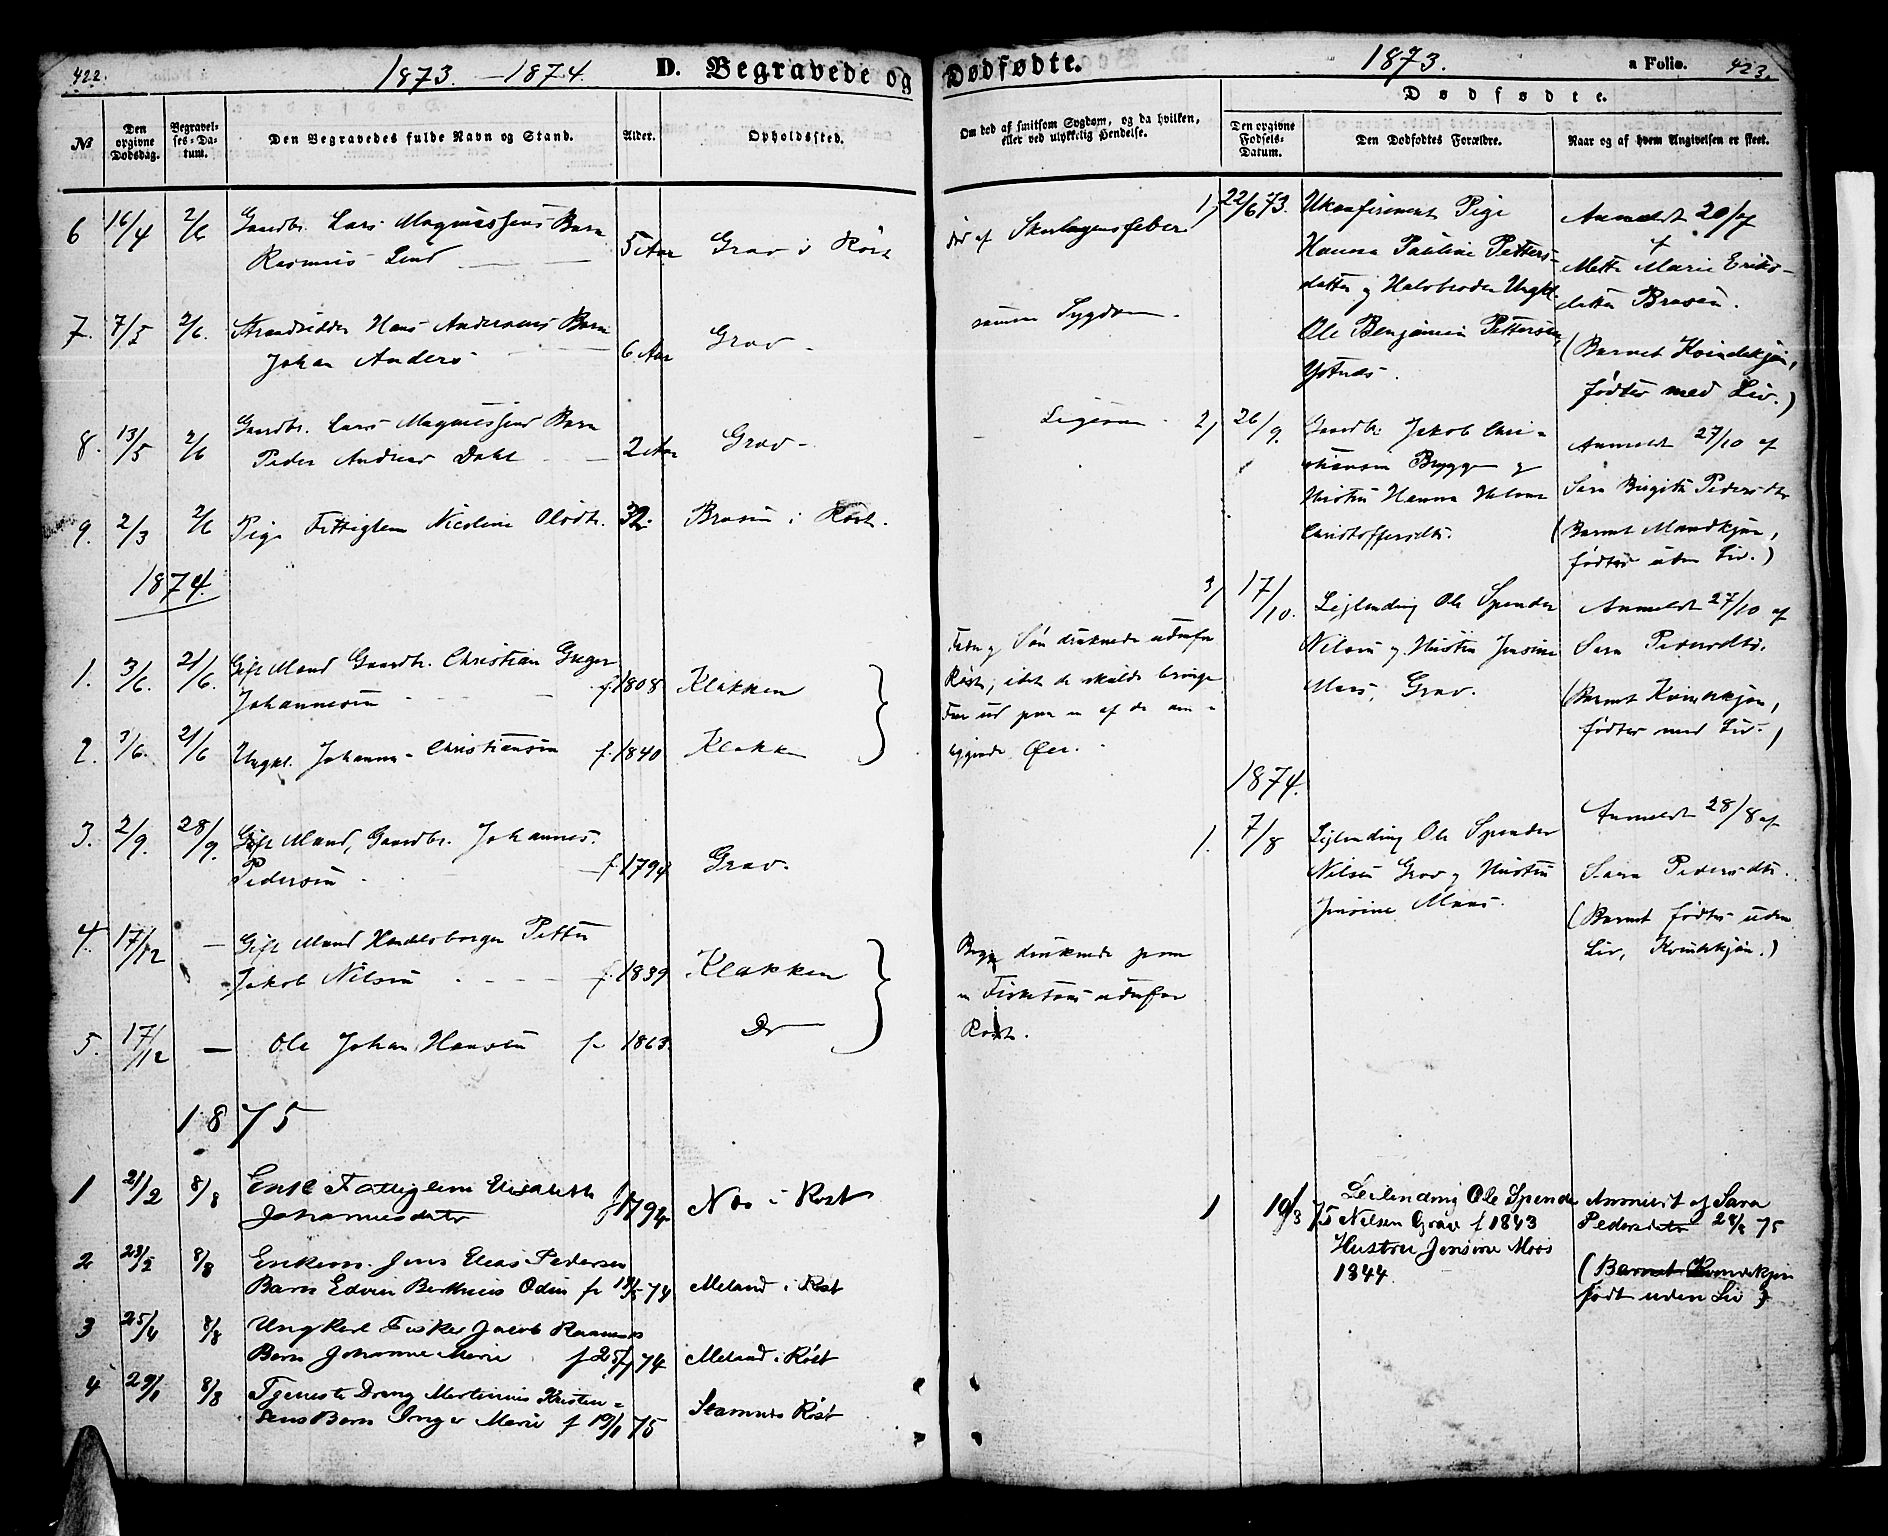 422.
1873. — 1874. D. Begravede og
No
Den opgivne Dødsdag.
Begravelses-Datum.
Den Begravedes fulde Navn og Stand.
Alder.
Opholdssted.
6 16/4 2/6 Gaardbr. Lars Magnussens Barn
Rasmus Lind 5 Aar Grav i Røst
7. 7/5 2/6. Strandsidder Hans Andersens Barn
Johan Anders 6 Aar Grav
8. 13/5 2/6 Gaardbr. Lars Magnussens Barn
Peder Andreas Dahl 2 Aar Grav
9. 2/3 2/6 Pige Fattiglem Nicoline Olsdtr. 32. i Røst.
1874.
1. 3/6. 21/6. Gift Mand Gaardbr. Christian Greger
Johannesen f. 1808 Klakken
2. 3/6. 21/6 Ungkl. Johannes Christiansen f. 1840 Klakken
3. 2/9. 28/9. Gift Mand, Gaardbr. Johannes
Pedersen f. 1794 Grav.
4. 17/12 — Gift Mand Handelsborger Petter
Jakob Nilsen f. 1839 Klakken
5. 17/12 — Ole Johan Hansen f. 1863 Do
1875
1 21/2 8/8 Enke Fattiglem Elisabeth
Johannesdatr f 1794 Næs i Røst
2 23/2 8/8 Enkem. Jens Elias Pedersen
Barn Edvin Berthnius Odin f 19/5 74 Meland i Røst
3 25/4 8/8 Ungkarl Fisker Jacob Rasmuses
Barn Johanne Marie f 25/1 74 Meland i Røst
4 29/1 8/8 Tjeneste Dreng Martinius Kristen-
sens Barn Inger Marie f 19/1 75 Stamnes Røst
Dødfødte. 1873. a Folio. 423.
Om død af smitsom Sygdom, og da hvilken, eller ved ulykkelig Hendelse.
Dødfødte.
Den opgivne Fødsels-Datum.
Den Dødfødtes Forældre.
Naar og af hvem Angivelsen er skeet.
død af Skarlagensfeber
samme Sygdom.
Ligesom
Fader og Søn druknede udenfor
Røst, idet de skulde bringe
Faar ud paa en af de om-
liggende Øer.
Begge druknede paa
en Fisketour udenfor
Røst.
1, 22/6 73. Ukonfirmert Pige
Hanna Pauline Petters-
datter og Halvbroder Ungkl.
Ole Benjamin Pettersen,
Ystnæs.
Anmeldt 20/7
Mette Marie Eriks-
datter
(Barnet Kvindekjøn,
fødtes med Liv.)
2, 26/9. Gaardbr. Jakob Chri-
stiansen Brygge og
Hustru Hanna
Christoffersdtr.
Anmeldt 27/10 af
Sara Birgitte Pedersdtr
(Barnet Mandkjøn,
fødtes uden Liv.)
3, 17/10. Leilending Ole Spender
Nilsen og Hustru Jensine
Maas, Grav.
Anmeldt 27/10 af
Sara Pedersdtr.
(Barnet Kvindekjøn,
fødtes med Liv.)
1874.
1. 7/8 Leilending Ole Spender
Nilsen Grav og Hustru
Jensine Maas.
Anmeldt 28/8 af
Sara Pedersdtr.
(Barnet fødtes uden
Liv, Kvindekjøn.)
1 19/3 75 Leilending Ole Spende
Nilsen Grav f 1843
Hustru Jensine Moos
1844.
Anmeldt af Sara
Pedersdatr 28/3 75
(Barnet Kvindekjøn
født uden Liv)